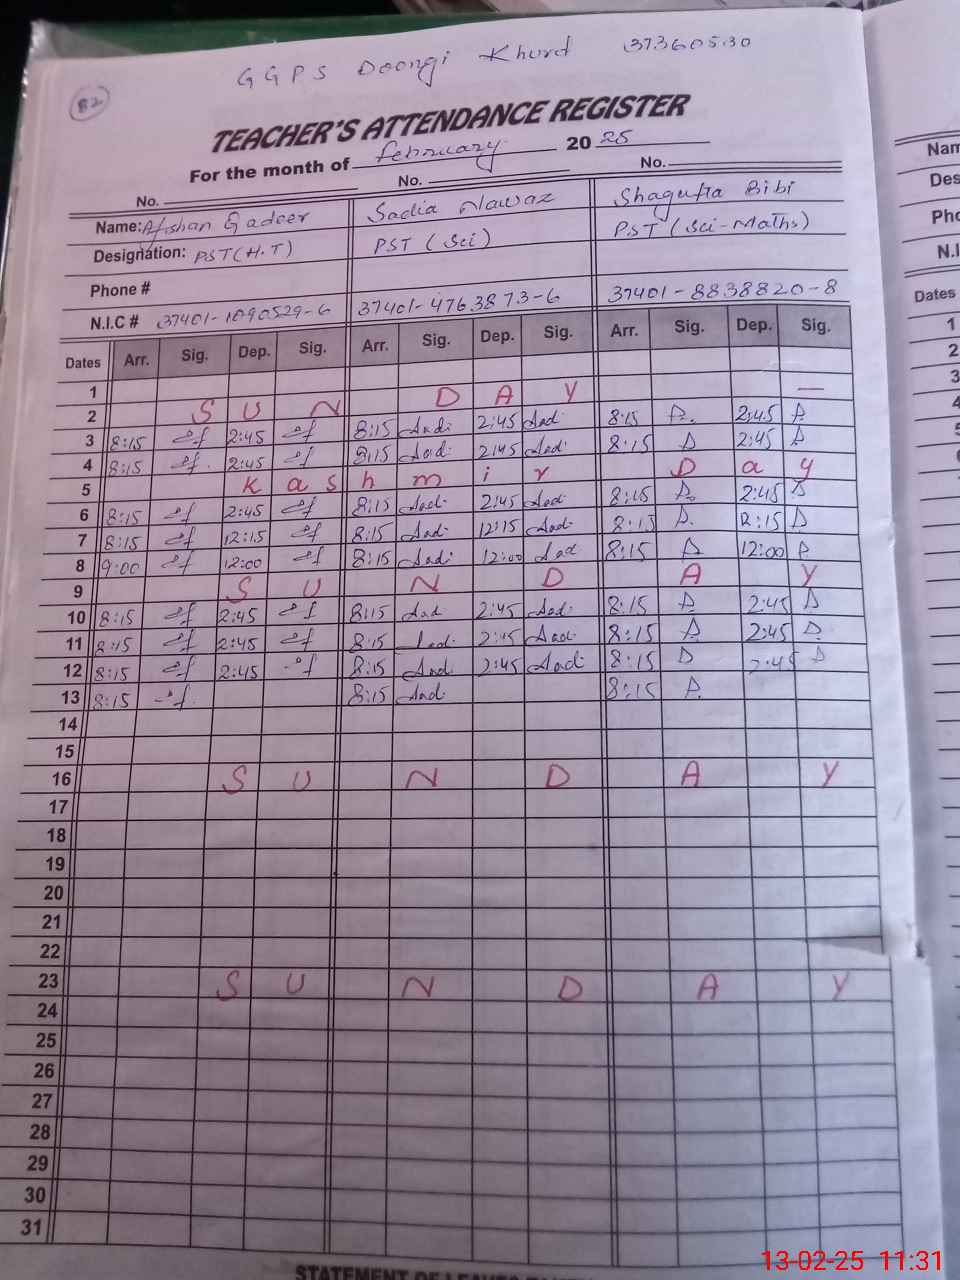 GGPS Doongi Khurd 37360530
82
TEACHER'S ATTENDANCE REGISTER
For the month of February 2025
No. No. No.
Name: Afshan Qadeer Sadia Nawaz Shagufta Bibi
Designation: PST (H.T) PST (Sci) PST (Sci-Maths)
Phone #
N.I.C # 37401-1090529-6 37401-4763873-6 37401-8838820-8
Dates Arr. Sig. Dep. Sig. Arr. Sig. Dep. Sig. Arr. Sig. Dep. Sig.
1
2 S U N D A Y —
3 8:15 2:45 8:15 Sadi 2:45 Sad 8:15 2:45
4 8:15 2:45 8:15 Sad 2:45 Sad 8:15 2:45
5 K a s h m i r D a y
6 8:15 2:45 8:15 Sad 2:45 Sad 8:15 2:45
7 8:15 12:15 8:15 Sad 12:15 Sad 8:15 12:15
8 9:00 12:00 8:15 Sad 12:00 Sad 8:15 12:00
9 S U N D A Y
10 8:15 2:45 8:15 Sad 2:45 Sad 8:15 2:45
11 8:15 2:45 8:15 Sad 2:45 Sad 8:15 2:45
12 8:15 2:45 8:15 Sad 2:45 Sad 8:15 2:45
13 8:15 8:15 Sad 8:15
14
15
16 S U N D A Y
17
18
19
20
21
22
23 S U N D A Y
24
25
26
27
28
29
30
31
Nam
Des
Pho
N.I
Dates
1
2
3
4
5
13-02-25 11:31